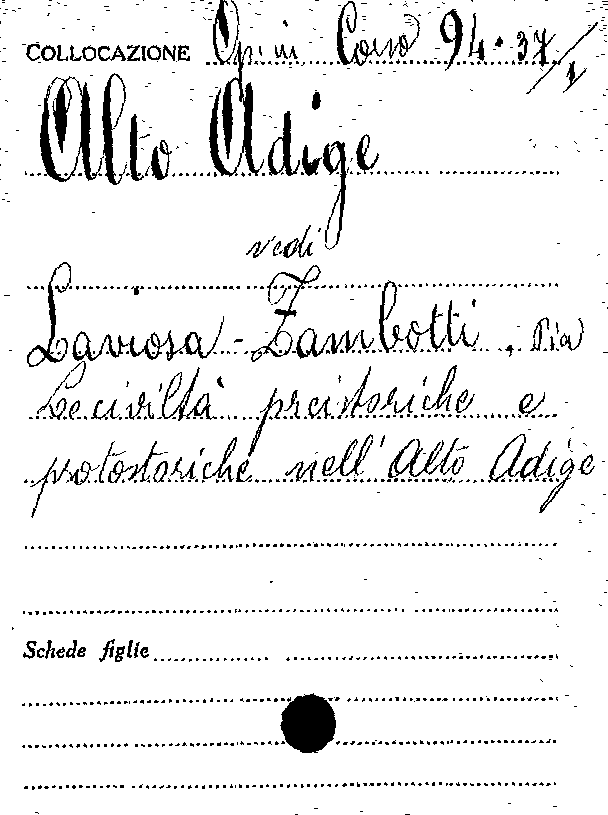 COLLOCAZIONE Op. in Corso 94.37/1
Alto Adige
vedi
Laviosa - Zambotti, Pia
Le civiltà preistoriche e
protostoriche nell'Alto Adige
Schede figlie